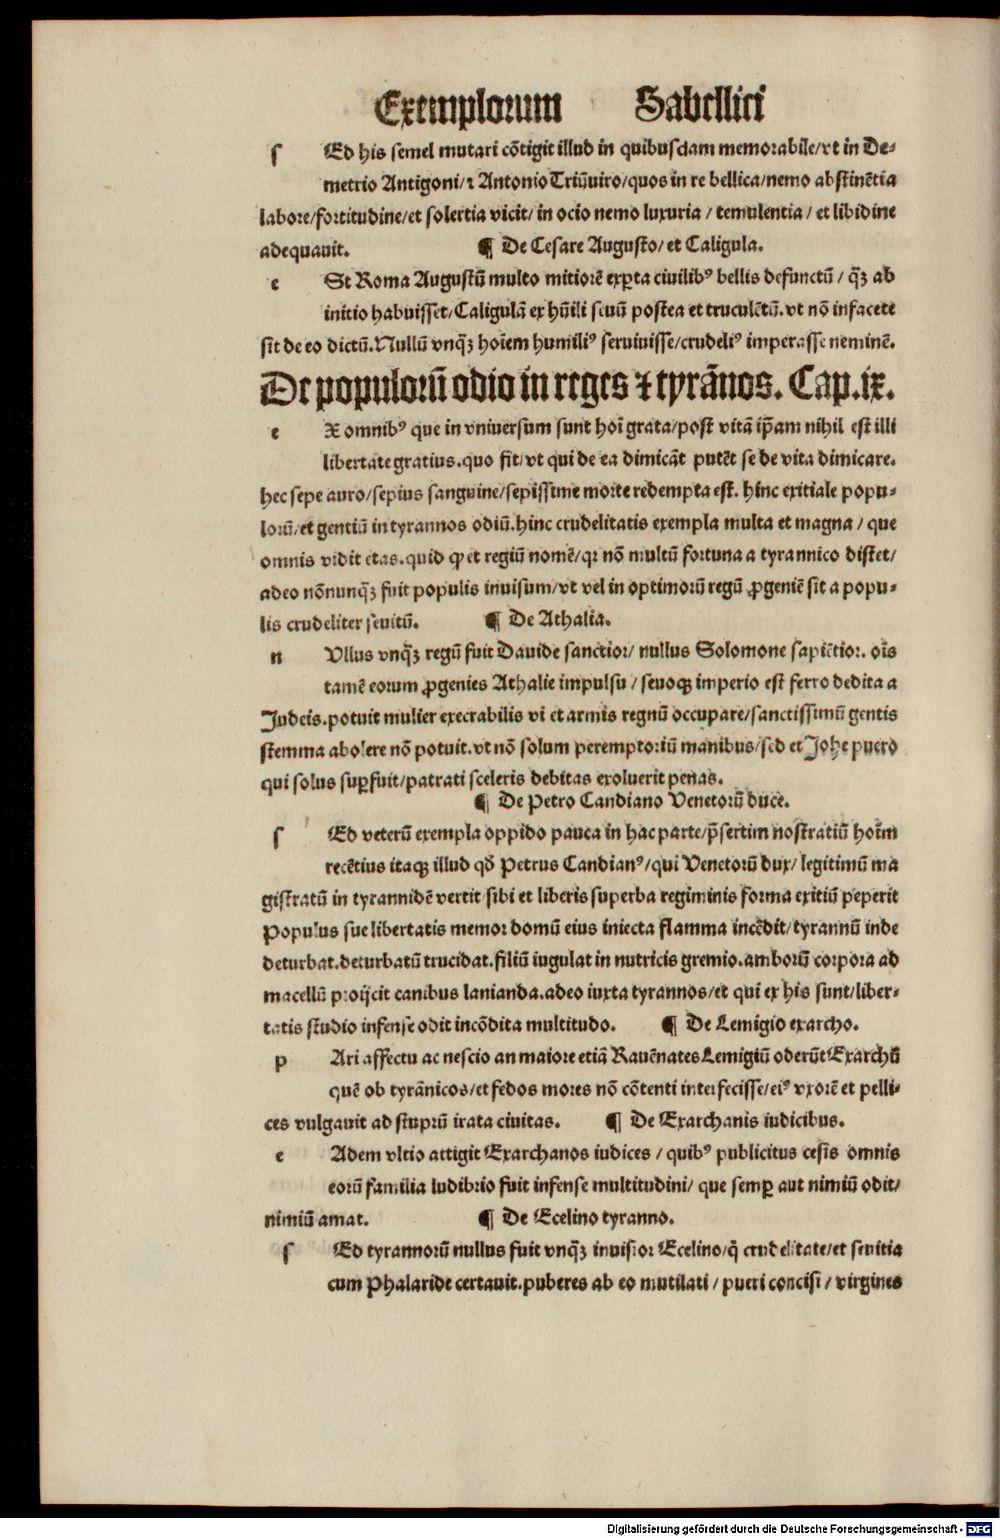 Exemplorum Sabellici
ſ Ed his semel mutari cõtigit illud in quibusdam memorabile/vt in De⸗
metrio Antigoni/⁊ Antonio Triũuiro/quos in re bellica/nemo abstinẽtia
labore/fortitudine/et solertia vicit/ in ocio nemo luxuria / temulentia / et libidine
adequauit. ¶ De Cesare Augusto/ et Caligula.
e St Roma Augustũ multo mitiorẽ exꝑta ciuilibꝰ bellis defunctũ / q̃ꝫ ab
initio habuisset/Caligulã ex hũili seuũ postea et truculẽtũ.vt nõ infacete
sit de eo dictũ.Nullũ vnq̃ꝫ hoĩem humiliꝰ seruiuisse/crudeliꝰ imperasse neminẽ.
De populorũ odio in reges ⁊ tyrãnos. Cap.ix.
e X omnibꝰ que in vniuersum sunt hoĩ grata/post vitã ip̃am nihil est illi
libertate gratius.quo fit/vt qui de ea dimicãt putẽt se de vita dimicare.
hec sepe auro/sepius sanguine/sepissime morte redempta est. hinc exitiale popu⸗
lorũ/et gentiũ in tyrannos odiũ.hinc crudelitatis exempla multa et magna / que
omnis vidit etas.quid ꝙ et regiũ nomẽ/qr nõ multũ fortuna a tyrannico distet/
adeo nõnunq̃ꝫ fuit populis inuisum/vt vel in optimorũ regũ ꝓgeniẽ sit a popu⸗
lis crudeliter seuitũ. ¶ De Athalia.
n Vllus vnq̃ꝫ regũ fuit Dauide sanctior/ nullus Solomone sapiẽtior. oĩs
tamẽ eorum ꝓgenies Athalie impulsu / seuoqꝫ imperio est ferro dedita a
Judeis.potuit mulier execrabilis vi et armis regnũ occupare/sanctissimũ gentis
stemma abolere nõ potuit.vt nõ solum peremptoriũ manibus/sed et Johe puero
qui solus suꝑfuit/patrati sceleris debitas exoluerit penas.
¶ De Petro Candiano Venetorũ duce.
ſ Ed veterũ exempla oppido pauca in hac parte/p̃sertim nostratiũ hoĩm
recẽtius itaqꝫ illud qđ Petrus Candianꝰ/qui Venetorũ dux/ legitimũ ma
gistratũ in tyrannidẽ vertit sibi et liberis superba regiminis forma exitiũ peperit
Populus sue libertatis memor domũ eius iniecta flamma incẽdit/tyrannũ inde
deturbat.deturbatũ trucidat.filiũ iugulat in nutricis gremio.amborũ corpora ad
macellũ proijcit canibus lanianda.adeo iuxta tyrannos/et qui ex his sunt/liber⸗
tatis studio infense odit incõdita multitudo. ¶ De Lemigio exarcho.
p Ari affectu ac nescio an maiore etiã Rauẽnates Lemigiũ oderũt Exarchũ
quẽ ob tyrãnicos/et fedos mores nõ cõtenti interfecisse/eiꝰ vxorẽ et pelli⸗
ces vulgauit ad stuprũ irata ciuitas. ¶ De Exarchanis iudicibus.
e Adem vltio attigit Exarchanos iudices / quibꝰ publicitus cesis omnis
eorũ familia ludibrio fuit infense multitudini/ que semꝑ aut nimiũ odit/
nimiũ amat. ¶ De Ecelino tyranno.
ſ Ed tyrannorũ nullus fuit vnq̃ꝫ inuisior Ecelino/q̃ crudelitate/et seuitia
cum Phalaride certauit.puberes ab eo mutilati / pueri concisi / virgines
Digitalisierung gefördert durch die Deutsche Forschungsgemeinschaft - DFG